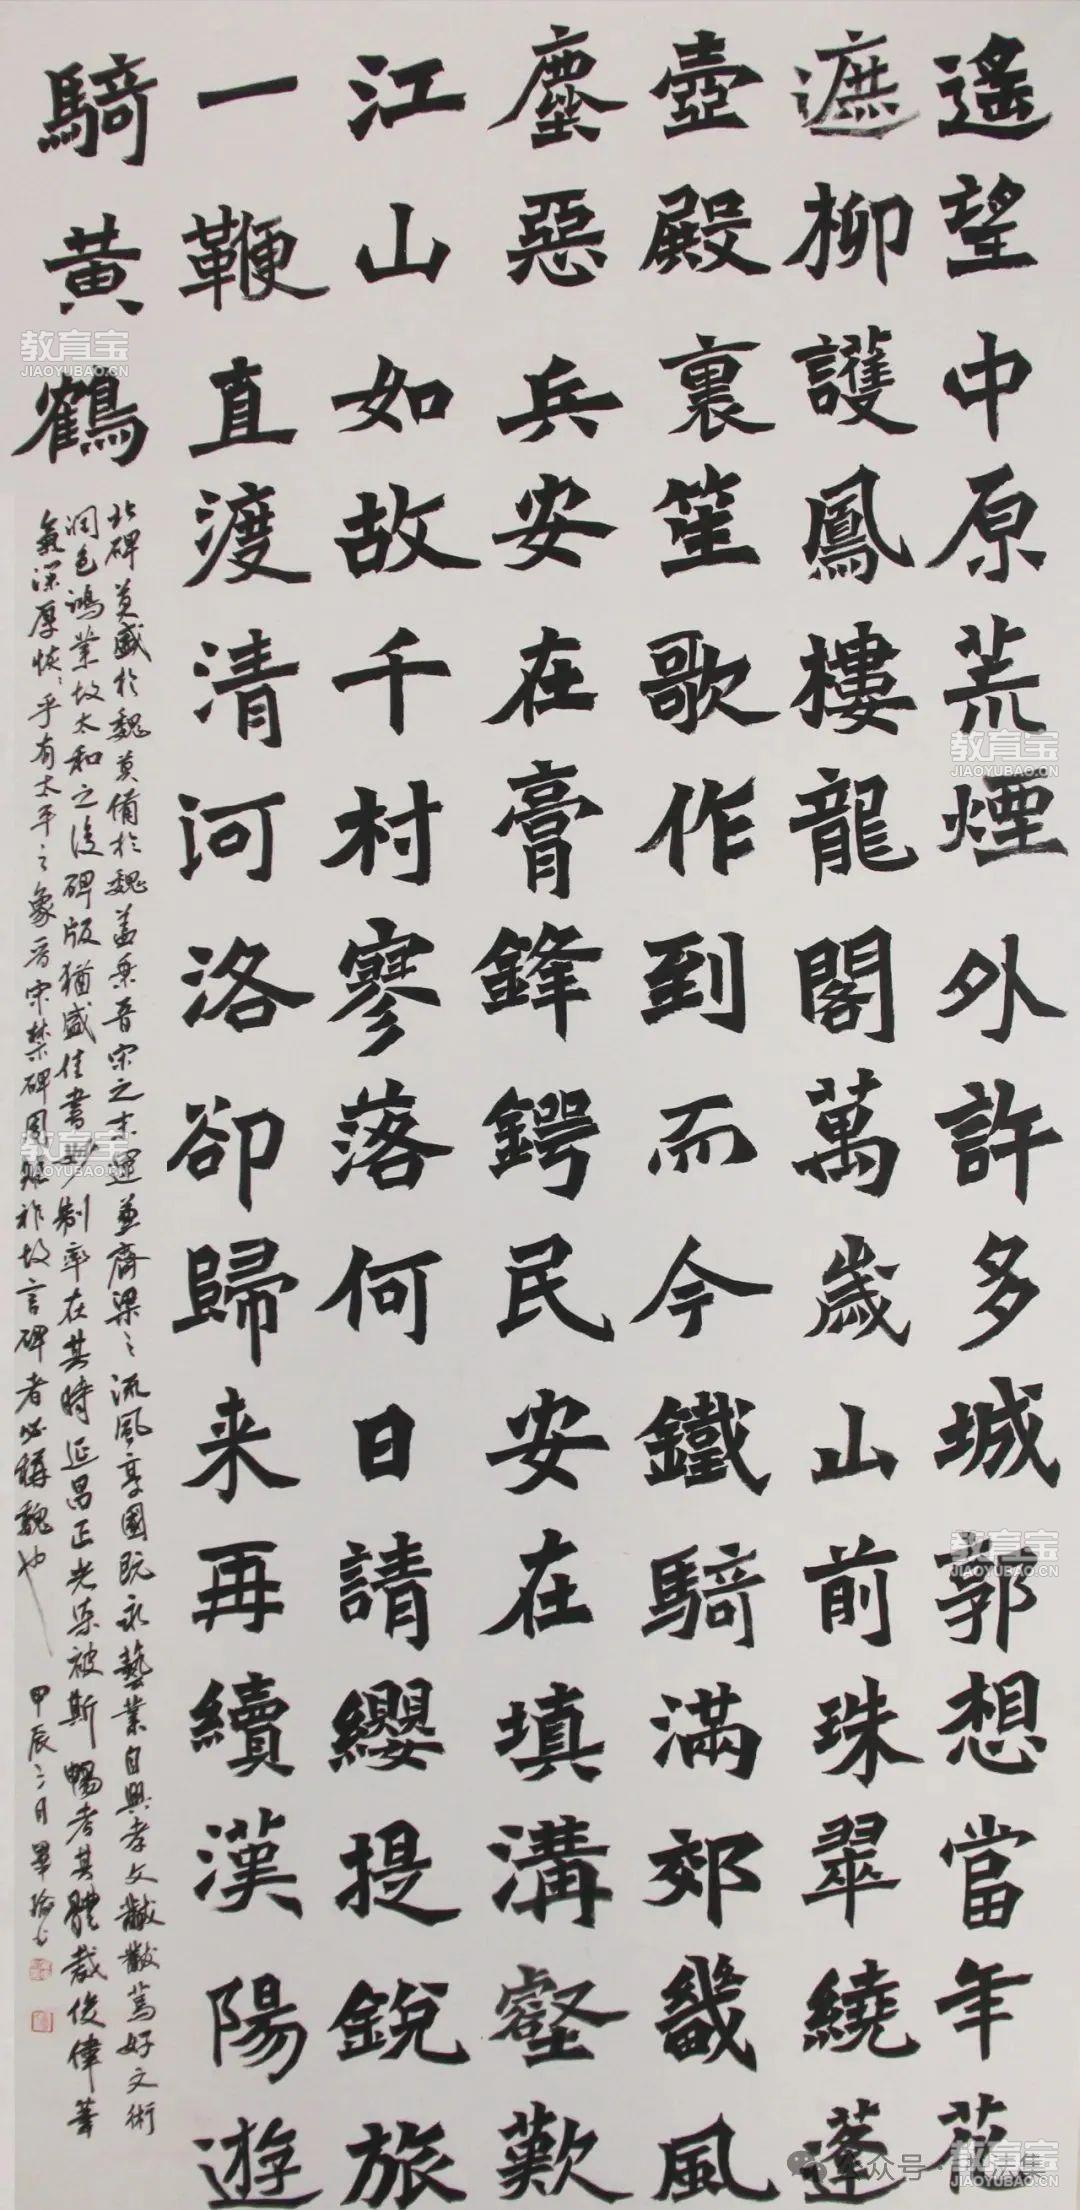 遙望中原荒煙外許多城郭想當年花
遮柳護鳳樓龍閣萬歲山前珠翠繞蓬
壺殿裏笙歌作到而今鐵騎滿郊畿風
塵惡兵安在膏鋒鍔民安在填溝壑歎
江山如故千村寥落何日請纓提銳旅
一鞭直渡清河洛卻歸来再續漢陽遊
騎黃鶴
北碑莫盛於魏莫備於魏蓋乘晉宋之末運兼齊梁之流風享國既永藝業自興孝文黻黻篤好文術
潤色鴻業故太和之後碑版猶盛佳書妙制率在其時延昌正光染被斯暢考其體裁俊偉筆
氣深厚恢恢乎有太平之象晉宋禁碑周難祚故言碑者必稱魏也
甲辰二月畢
教育宝
JIAOYUBAO.CN
教育宝
JIAOYUBAO.CN
教育宝
JIAOYUBAO.CN
教育宝
JIAOYUBAO.CN
教育宝
JIAOYUBAO.CN
公众号